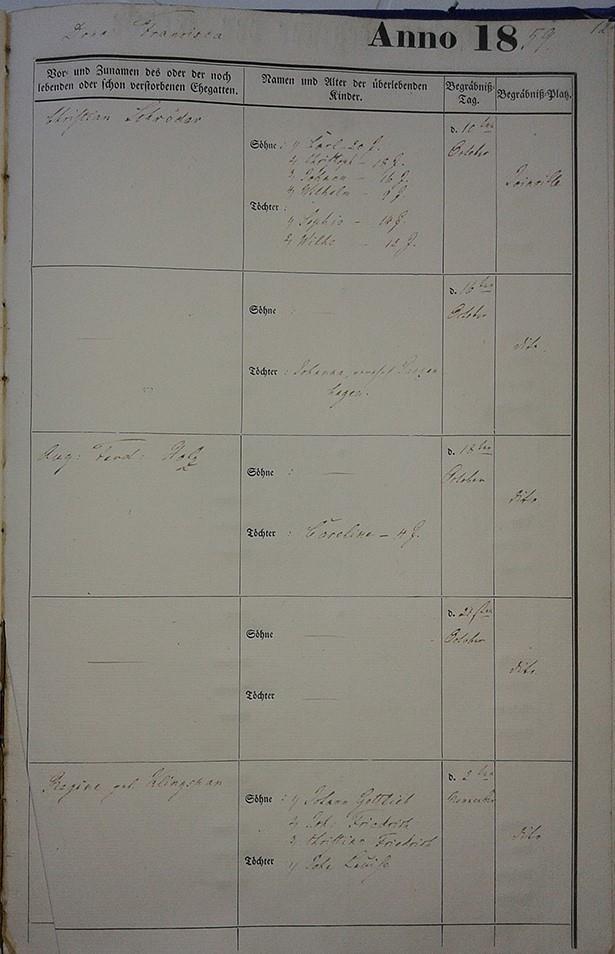 Dona Francisca
Anno 1859
Vor- und Zunamen des oder der noch
lebenden oder schon verstorbenen Ehegatten.
Namen und Alter der überlebenden
Kinder.
Begräbniß-
Tag.
Begräbniß-Platz.
Christian Schröder
Söhne : 1) Carl 20 J.
2) Christoph - 18 J.
3) Johann - 16 J.
4) Wilhelm - 9 J.
Töchter :
1) Sophie - 14 J.
2) Wilhe - 12 J.
d. 10ten
October
Joinville
Söhne :
Töchter : Johanna,
hagen.
d. 16ten
October
dito
Aug: Ferd: Holz
Söhne :
Töchter : Caroline - 4 J.
d. 18ten
October
dito
Söhne
Töchter
d. 21sten
October
dito
Regine geb. Klingspan
Söhne : 1) Johann Gottlieb
2) Joh: Friedrich
3) Christian Friedrich
Töchter 1) Joha Louise
d. 2ten
November
dito